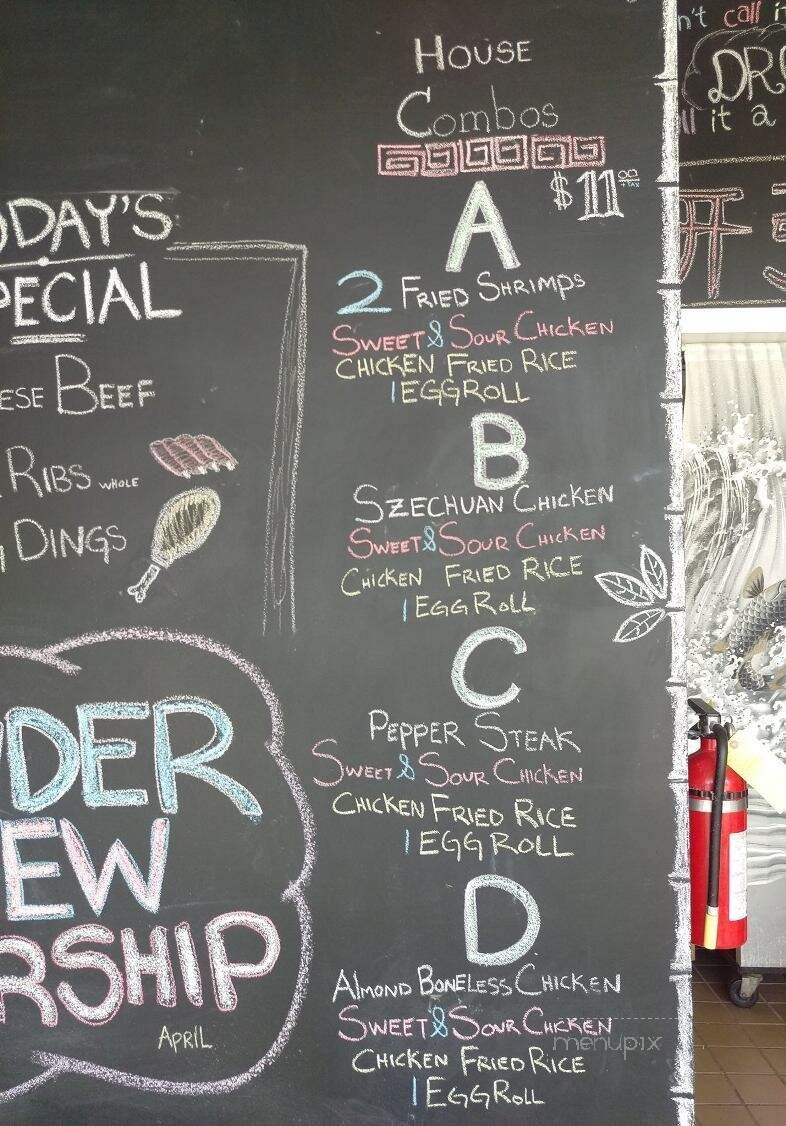 HOUSE
Combos
$11.00
+TAX
A
2 FRIED SHRIMPS
SWEET & SOUR CHICKEN
CHICKEN FRIED RICE
1 EGGROLL
B
SZECHUAN CHICKEN
SWEET & SOUR CHICKEN
CHICKEN FRIED RICE
1 EGGROLL
C
PEPPER STEAK
SWEET & SOUR CHICKEN
CHICKEN FRIED RICE
1 EGGROLL
D
ALMOND BONELESS CHICKEN
SWEET & SOUR CHICKEN
CHICKEN FRIED RICE
1 EGGROLL
ODAY'S
PECIAL
ESE BEEF
RIBS WHOLE
DINGS
DER
EW
RSHIP
APRIL
n't call it
DR
ll it a
开
menupix